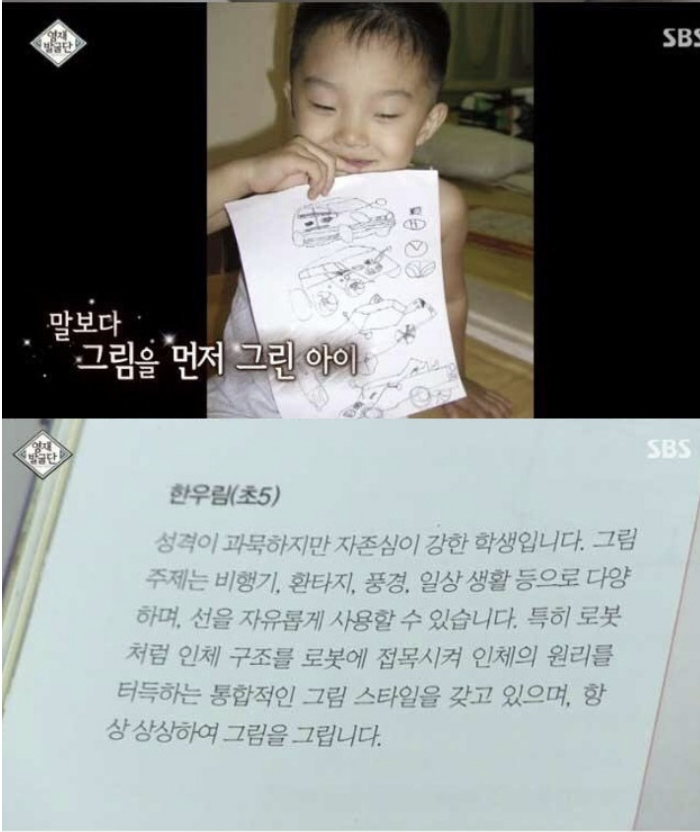 영재
발굴단
SBS
말보다
그림을 먼저 그린 아이
영재
발굴단
SBS
한우림(초5)
성격이 과묵하지만 자존심이 강한 학생입니다. 그림
주제는 비행기, 환타지, 풍경, 일상 생활 등으로 다양
하며, 선을 자유롭게 사용할 수 있습니다. 특히 로봇
처럼 인체 구조를 로봇에 접목시켜 인체의 원리를
터득하는 통합적인 그림 스타일을 갖고 있으며, 항
상 상상하여 그림을 그립니다.